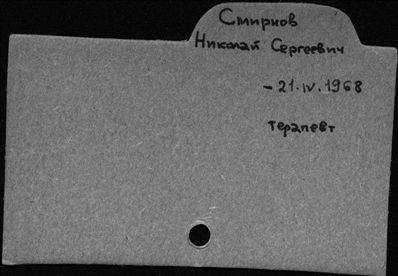 Смирнов
Николай Сергеевич
- 21.IV.1968
терапевт